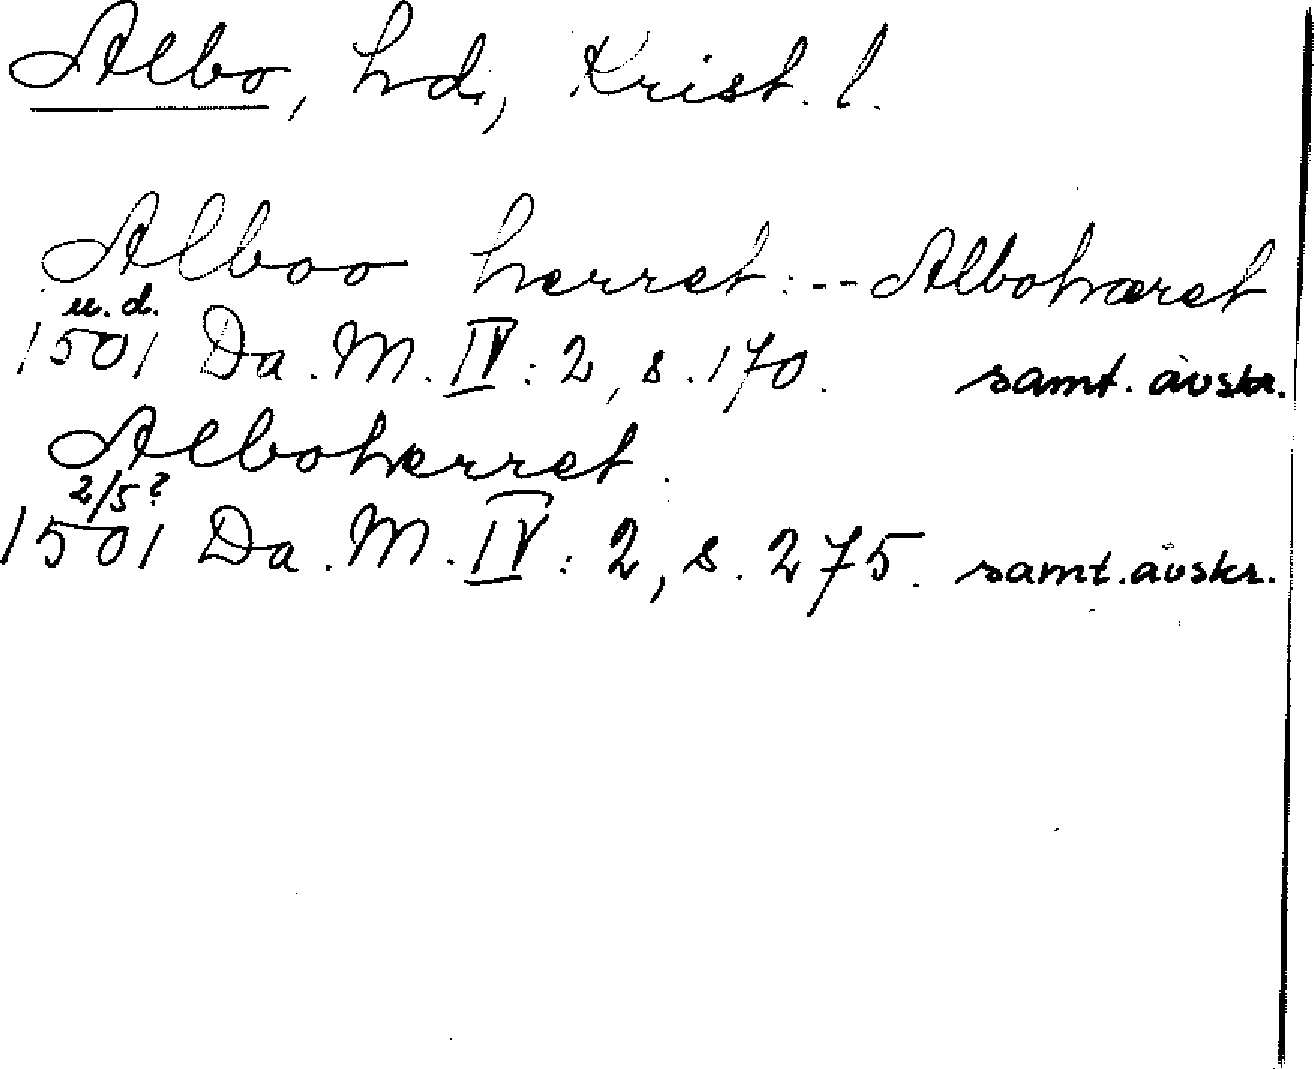 Albo, hd, Krist. l.
Alboo herret: -- Albohæret
u. d.
1501 Da. M. IV: 2, s. 170. samt. avskr.
Alboherret.
2/5?
1501 Da. M. IV: 2, s. 275. samt. avskr.